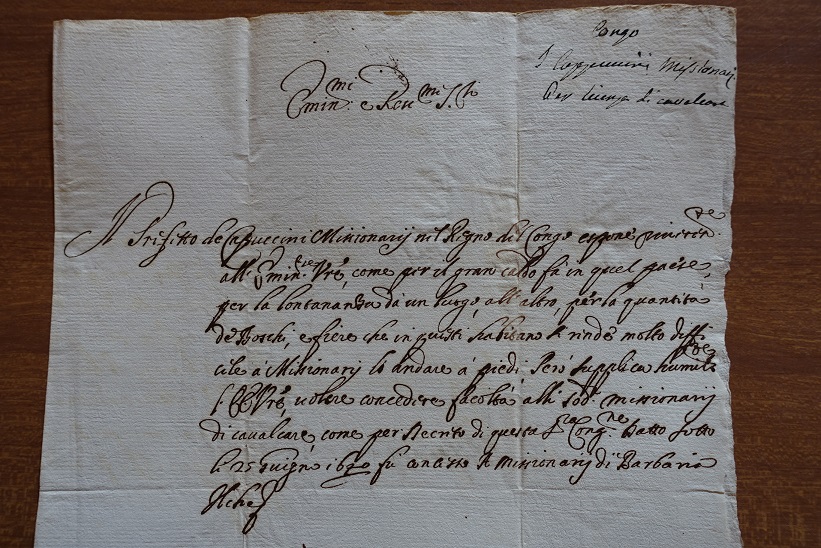 Congo
I Cappuccini Missionarij
Per licenza di cavalcare
Emin.mi e Rev.mi S.ri
Il Prefetto de Capuccini Missionarij nel Regno del Congo espone riveren.te
all' Emin.ze Vre, come per il gran caldo fà in quel paese,
per la lontananza da un luogo, all' altro, per la quantità
de Boschi, e fiere che in questi habitano si rende molto diffi
cile a' Missionarij lo andare a' piedi. Però supplica humilm.te
l' EE Vre, volere concedere facoltà alli sod.i missionarij
di cavalcare, come per Decreto di questa S.ra Cong.ne datto sotto
li 25 Giugno fu concesso a Missionarij di Barbaria
Il che